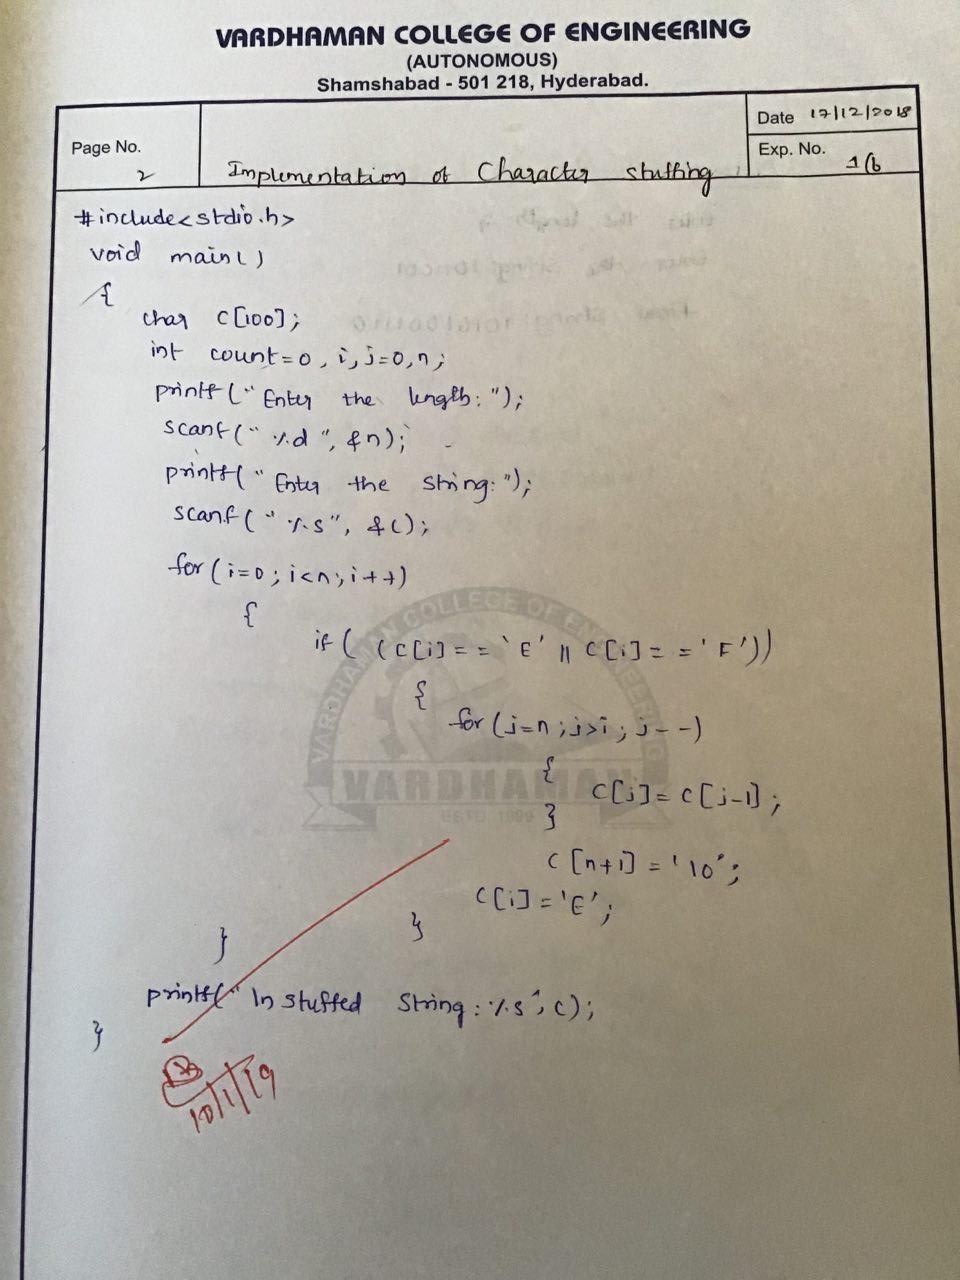 VARDHAMAN COLLEGE OF ENGINEERING
(AUTONOMOUS)
Shamshabad - 501 218, Hyderabad.
Page No. 2
Implementation of Character stuffing
Date 17/12/2018
Exp. No. 1b
#include<stdio.h>
void main()
{
char c[100];
int count=0, i, j=0, n;
printf("Enter the length: ");
scanf("%d", &n);
printf("Enter the string: ");
scanf("%s", &c);
for(i=0; i<n; i++)
{
if((c[i]=='E' || c[i]=='F'))
{
for(j=n; j>i; j--)
{
c[j]=c[j-1];
}
c[n+1]='\0';
c[i]='E';
}
}
printf("\n stuffed String: %s", c);
}
10/1/19
VARDHAMAN COLLEGE OF ENGINEERING
VARDHAMAN
ESTD 1999